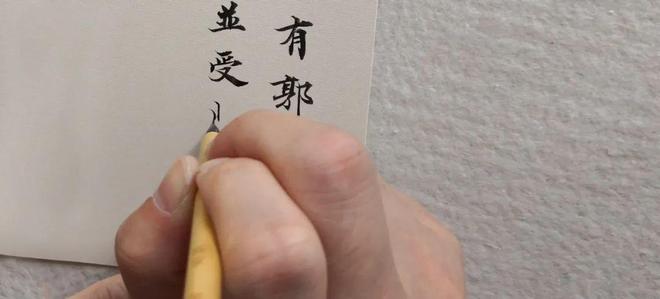 有郭
並受